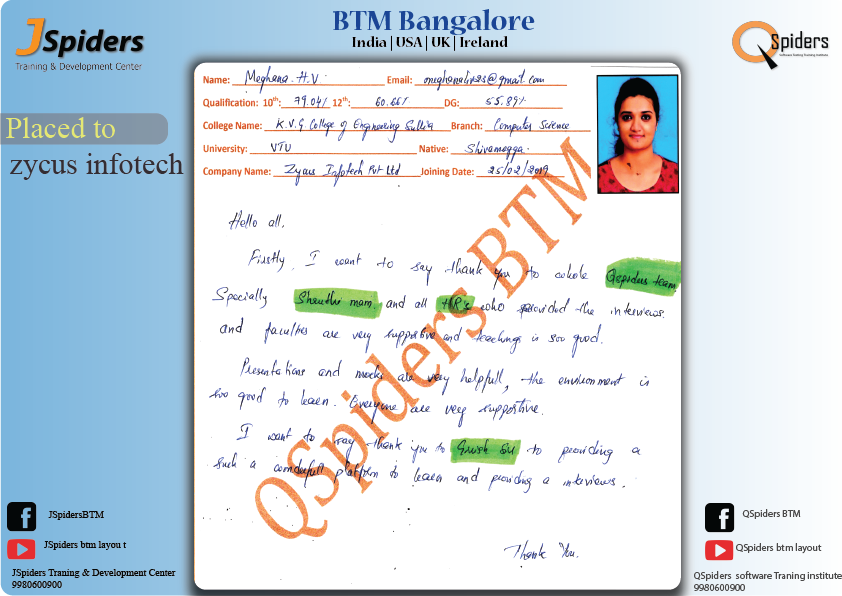 JSpiders
Training & Development Center
BTM Bangalore
India | USA | UK | Ireland
QSpiders
Software Testing Training Institute
Placed to
zycus infotech
Name: Meghana. H.V Email: meghanahv23@gmail.com
Qualification: 10th: 79.04% 12th: 60.66% DG: 55.89%
College Name: K.V.G College of Engineering Sullia Branch: Computer Science
University: VTU Native: Shivamogga
Company Name: Zycus Infotech Pvt Ltd Joining Date: 25/02/2019
Hello all,
Firstly, I want to say thank you to whole Qspiders team
Specially Shanthi mam, and all HR's who provided the interviews
and faculties are very supportive and teachings is soo good.
Presentations and mocks are very helpfull, the environment is
soo good to learn. Everyone are very supportive.
I want to say thank you to Girish Sir to providing a
such a wonderfull platfom to learn and providing a interviews.
Thank You.
QSpiders BTM
JSpidersBTM
JSpiders btm layou t
JSpiders Traning & Development Center
9980600900
QSpiders BTM
QSpiders btm layout
QSpiders software Traning institute
9980600900